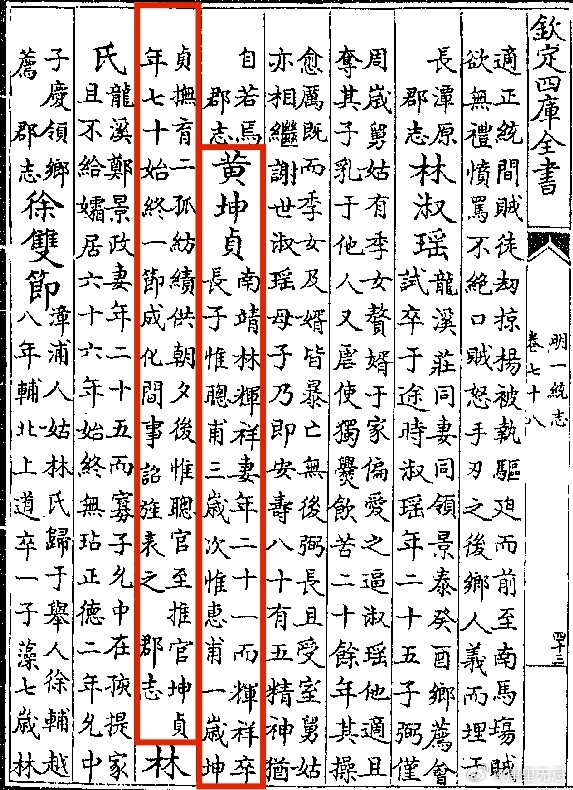 欽定四庫全書
明一統志
卷七十八
四十三
適正統間賊徒刼掠揚被執驅廹而前至南馬塲賊
欲無禮憤罵不絕口賊怒手刃之後鄉人義而埋于
長潭原
郡志
林淑瑶
龍溪莊同妻同領景泰癸酉鄉薦會
試卒于途時淑瑶年二十五子弼僅
周歲舅姑有季女贅婿于家偏愛之逼淑瑶他適且
奪其子乳于他人又虐使獨爨飲苦二十餘年其操
愈厲既而季女及婿皆暴亡無後弼長且受室舅姑
亦相繼謝世淑瑶母子乃即安壽八十有五精神猶
自若焉
郡志
黄坤貞
南靖林輝祥妻年二十一而輝祥卒
長子惟聰甫三歲次惟惠甫一歲坤
貞撫育二孤紡績供朝夕後惟聰官至推官坤貞
年七十始終一節成化間事詔旌表之 郡志
林
氏
龍溪鄭景政妻年二十五而寡子允中在孩提家
且不給孀居六十六年始終無玷正德二年允中
子慶領鄉
薦 郡志
徐雙節
漳浦人姑林氏歸于舉人徐輔越
八年輔北上道卒一子藻七歲林